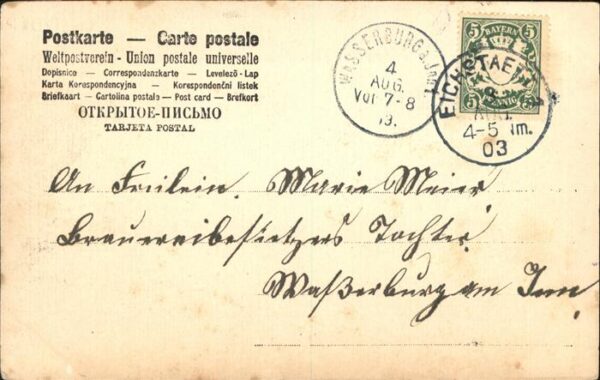 Postkarte — Carte postale
Weltpostverein - Union postale universelle
Dopisnice — Correspondenzkarte — Levelező-Lap
Karta Korespondencyjna — Korespondenční listek
Briefkaart — Cartolina postale — Post card — Brefkort
ОТКРЫТОЕ-ПИСЬМО
TARJETA POSTAL
WASSERBURG a. Inn
4
AUG.
Vor 7-8
BAYERN
5 5
5 PFENNIG 5
EICHSTAETT
4-5 Nm.
03
An Fräulein Marie Meier
Brauereibesitzers Tochter
Waßerburg am Inn